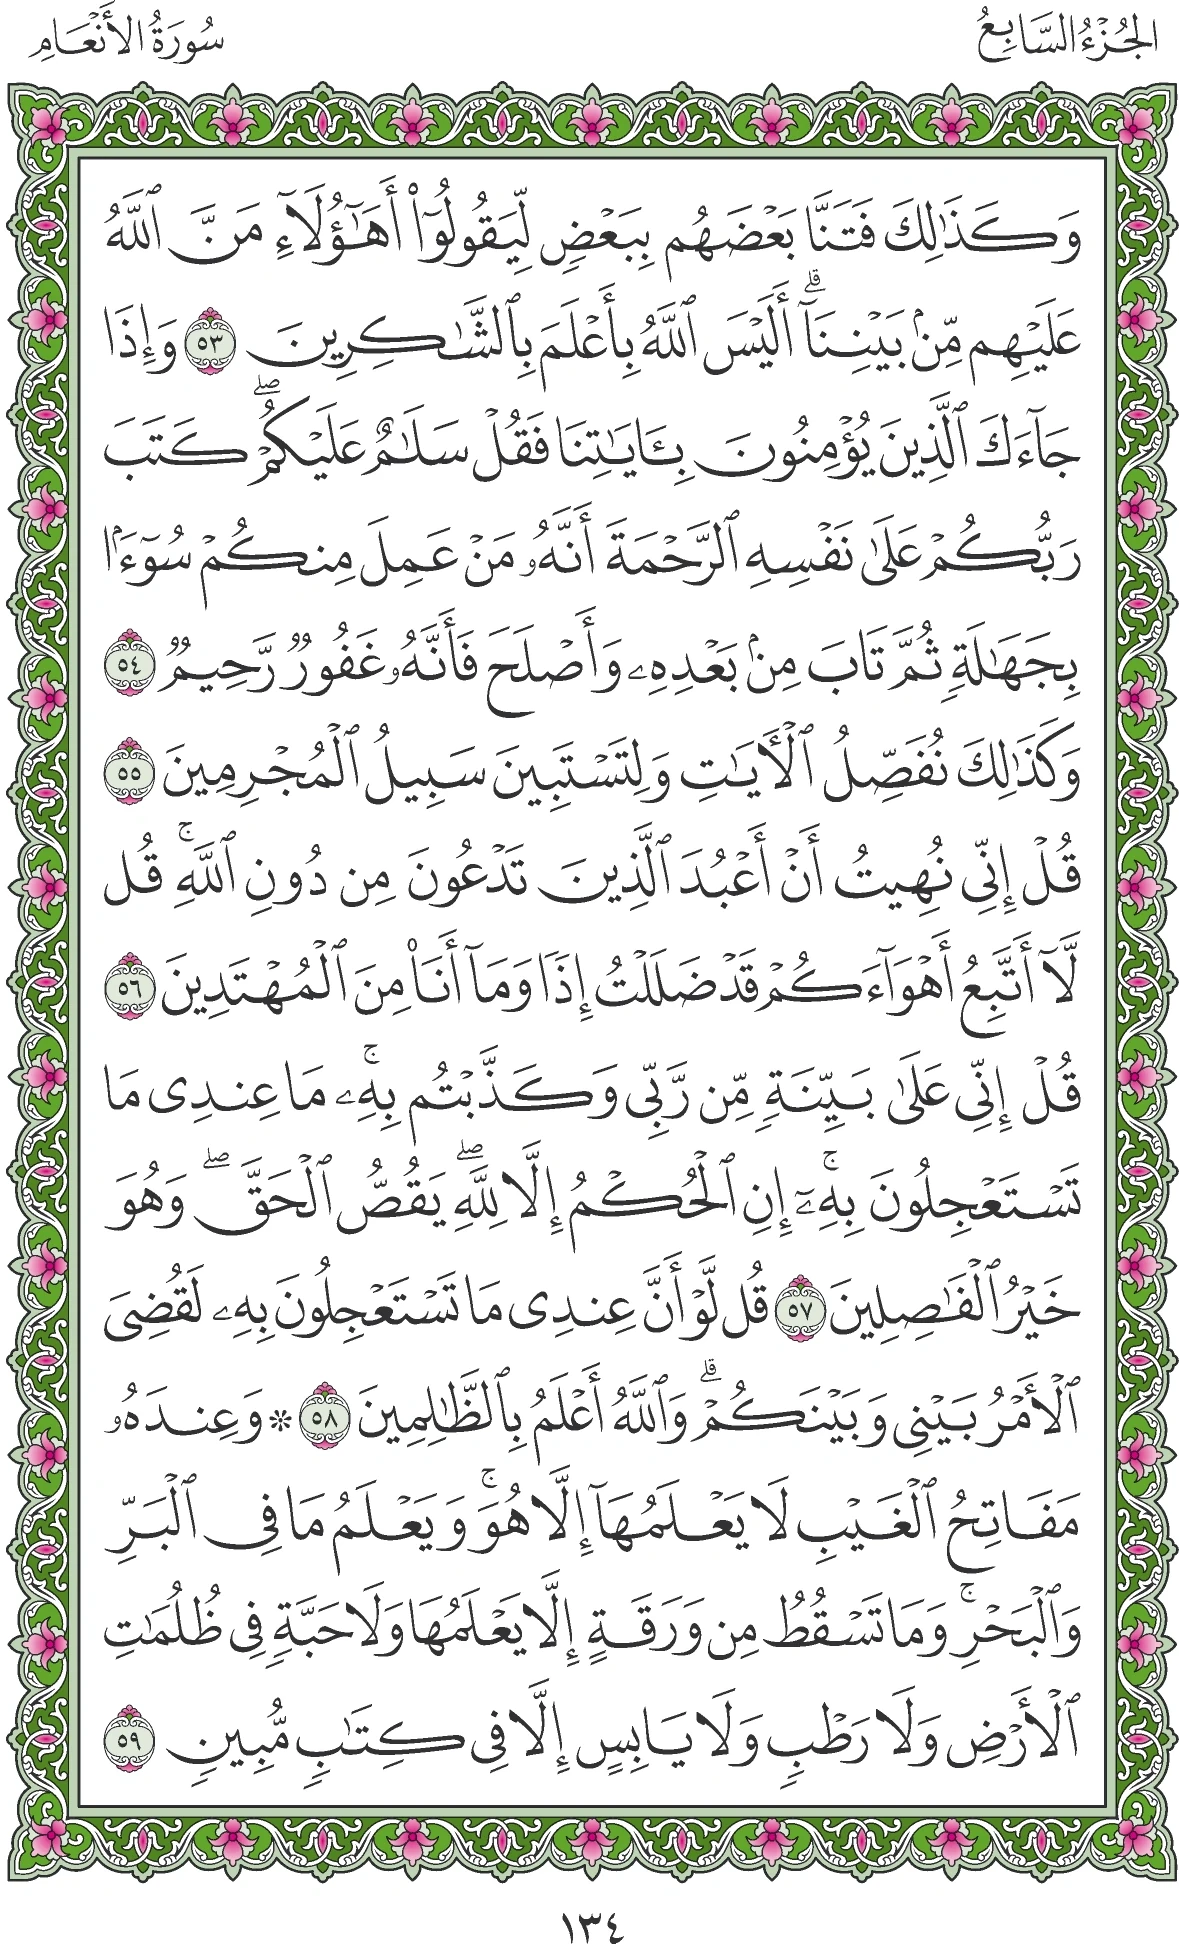 الجُزْءُ السَّابِعُ
سُورَةُ الأَنْعَامِ
وَكَذَٰلِكَ فَتَنَّا بَعْضَهُم بِبَعْضٍ لِّيَقُولُوٓا۟ أَهَٰٓؤُلَآءِ مَنَّ ٱللَّهُ
عَلَيْهِم مِّنۢ بَيْنِنَآ ۗ أَلَيْسَ ٱللَّهُ بِأَعْلَمَ بِٱلشَّٰكِرِينَ ٥٣ وَإِذَا
جَآءَكَ ٱلَّذِينَ يُؤْمِنُونَ بِـَٔايَٰتِنَا فَقُلْ سَلَٰمٌ عَلَيْكُمْ ۖ كَتَبَ
رَبُّكُمْ عَلَىٰ نَفْسِهِ ٱلرَّحْمَةَ أَنَّهُۥ مَنْ عَمِلَ مِنكُمْ سُوٓءًۢا
بِجَهَٰلَةٍ ثُمَّ تَابَ مِنۢ بَعْدِهِۦ وَأَصْلَحَ فَأَنَّهُۥ غَفُورٌ رَّحِيمٌ ٥٤
وَكَذَٰلِكَ نُفَصِّلُ ٱلْـَٔايَٰتِ وَلِتَسْتَبِينَ سَبِيلُ ٱلْمُجْرِمِينَ ٥٥
قُلْ إِنِّى نُهِيتُ أَنْ أَعْبُدَ ٱلَّذِينَ تَدْعُونَ مِن دُونِ ٱللَّهِ ۚ قُل
لَّآ أَتَّبِعُ أَهْوَآءَكُمْ قَدْ ضَلَلْتُ إِذًا وَمَآ أَنَا۠ مِنَ ٱلْمُهْتَدِينَ ٥٦
قُلْ إِنِّى عَلَىٰ بَيِّنَةٍ مِّن رَّبِّى وَكَذَّبْتُم بِهِۦ ۚ مَا عِندِى مَا
تَسْتَعْجِلُونَ بِهِۦٓ ۚ إِنِ ٱلْحُكْمُ إِلَّا لِلَّهِ ۖ يَقُصُّ ٱلْحَقَّ ۖ وَهُوَ
خَيْرُ ٱلْفَٰصِلِينَ ٥٧ قُل لَّوْ أَنَّ عِندِى مَا تَسْتَعْجِلُونَ بِهِۦ لَقُضِىَ
ٱلْأَمْرُ بَيْنِى وَبَيْنَكُمْ ۗ وَٱللَّهُ أَعْلَمُ بِٱلظَّٰلِمِينَ ٥٨ * وَعِندَهُۥ
مَفَاتِحُ ٱلْغَيْبِ لَا يَعْلَمُهَآ إِلَّا هُوَ ۚ وَيَعْلَمُ مَا فِى ٱلْبَرِّ
وَٱلْبَحْرِ ۚ وَمَا تَسْقُطُ مِن وَرَقَةٍ إِلَّا يَعْلَمُهَا وَلَا حَبَّةٍ فِى ظُلُمَٰتِ
ٱلْأَرْضِ وَلَا رَطْبٍ وَلَا يَابِسٍ إِلَّا فِى كِتَٰبٍ مُّبِينٍ ٥٩
١٣٤